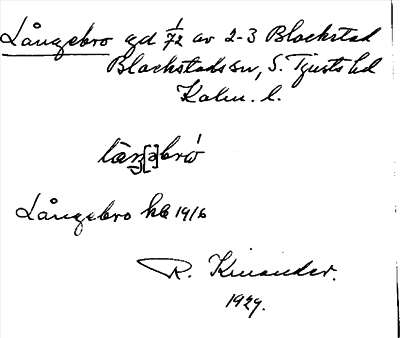 Långebro gd 1/72 av 2-3 Blackstad
Blackstads sn, S. Tjusts hd
Kalm. l.
låŋ[ə]brò
Långebro hb 1916
R. Kinander.
1929.